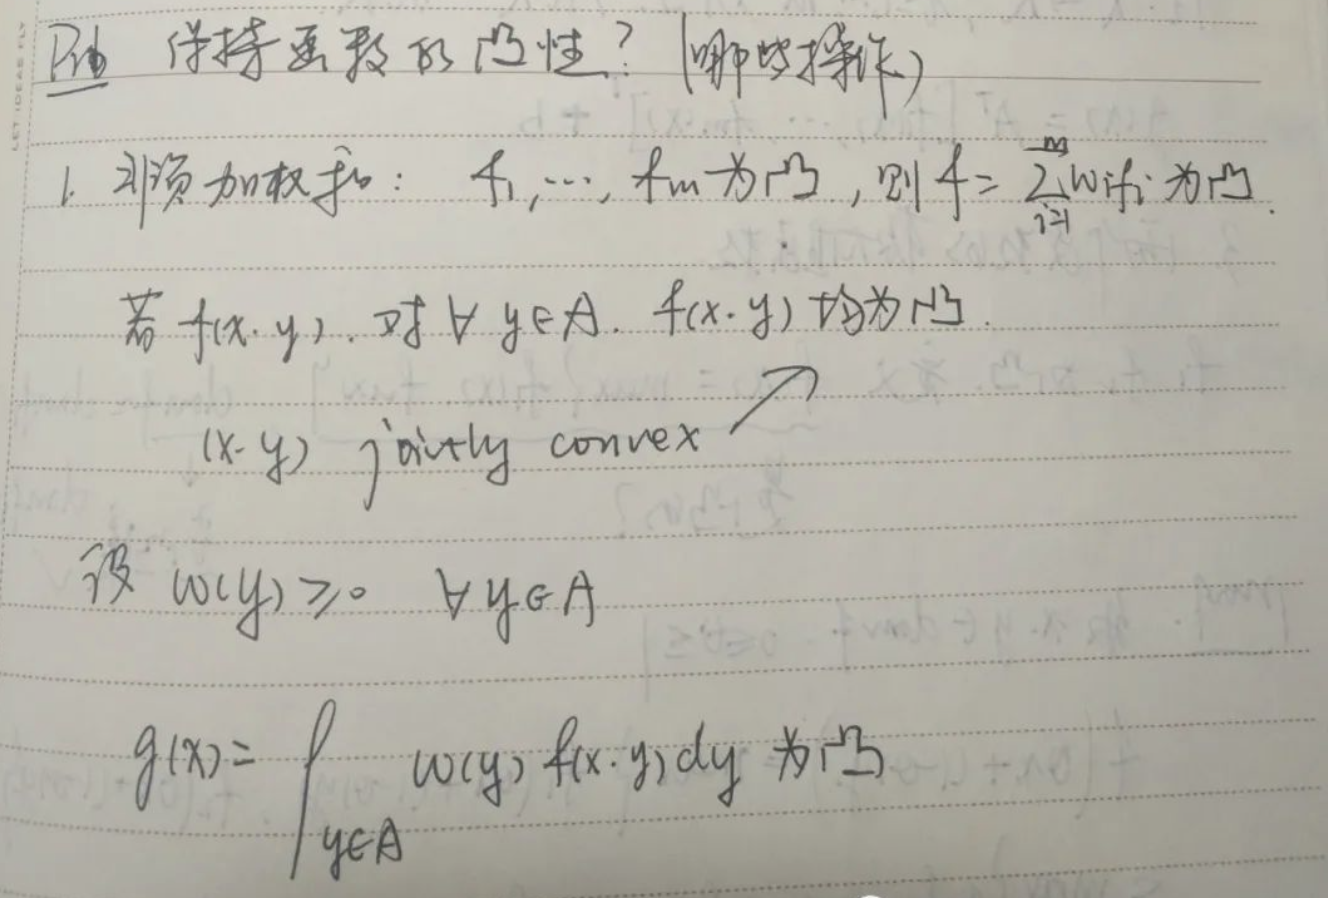 Prob 保持函数的凸性？（哪些操作）
1. 非负加权和： f₁, …, fₘ 为凸，则 f = ∑_{i=1}^{m} wᵢfᵢ 为凸.
若 f(x.y). 对 ∀ y∈A. f(x.y) 均为凸.
(x.y) jointly convex ↗
设 w(y) ≥ 0 ∀ y∈A
g(x) = ∫_{y∈A} w(y) f(x.y) dy 为凸